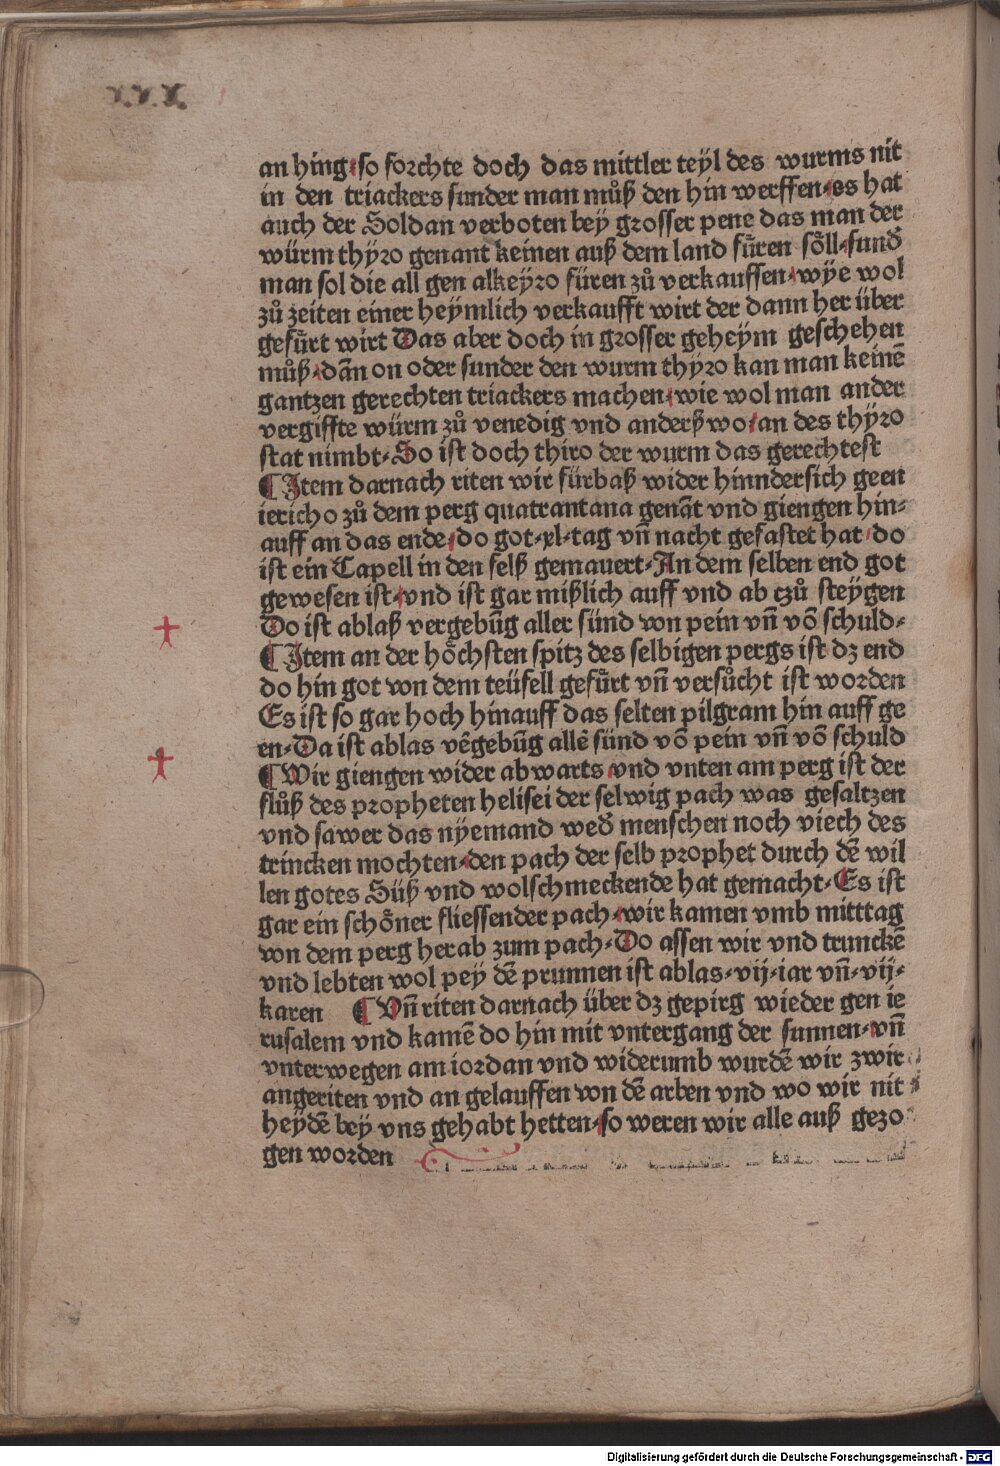 x.x.x.
an hing so forchte doch das mittler teÿl des wurms nit
in den triackers sunder man můß den hin werffen es hat
auch der Soldan verboten bey grosser pene das man der
würm thÿro genant keinen auß dem land fu̍ren so̍ll sund̄
man sol die all gen alkeÿro füren zů verkauffen wÿe wol
zů zeiten einer heÿmlich verkaufft wirt der dann her über
gefürt wirt Das aber doch in grosser geheÿm geschehen
můß dān on oder sunder den wurm thÿro kan man keinē
gantzen gerechten triackers machen wie wol man ander
vergiffte würm zů venedig vnd anderß wo an des thÿro
stat nimbt. So ist doch thiro der wurm das gerechtest
¶ Item darnach riten wir fürbaß wider hinndersich geen
iericho zů dem perg quatrantana genāt vnd giengen hin-
auff an das ende do got.xl.tag vn̄ nacht gefastet hat do
ist ein Capell in den felß gemauert. An dem selben end got
gewesen ist vnd ist gar mißlich auff vnd ab czů steÿgen
Do ist ablaß vergebūg aller sünd von pein vn̄ vō schuld.
¶ Item an der höchsten spitz des selbigen pergs ist dz end
do hin got von dem teüfell gefürt vn̄ versücht ist worden
Es ist so gar hoch hinauff das selten pilgram hin auff ge
en. Da ist ablas vēgebūg allē sünd vō pein vn̄ vō schuld
¶ Wir giengen wider abwarts vnd vnten am perg ist der
flůß des propheten helisei der selwig pach was gesaltzen
vnd sawer das nÿemand wed̄ menschen noch viech des
trincken mochten den pach der selb prophet durch dē wil
len gotes Süß vnd wolschmeckende hat gemacht. Es ist
gar ein schöner fliessender pach wir kamen vmb mitttag
von dem perg herab zum pach. Do assen wir vnd trunckē
vnd lebten wol pey dē prunnen ist ablas.vij.iar vn̄.vij.
karen ¶ Vn̄ riten darnach über dz gepirg wieder gen ie
rusalem vnd kamē do hin mit vntergang der sunnen. vn̄
vnterwegen am iordan vnd widerumb wurdē wir zwir
angeriten vnd an gelauffen von dē arben vnd wo wir nit
heÿdē bey vns gehabt hetten so weren wir alle auß gezo
gen worden
Digitalisierung gefördert durch die Deutsche Forschungsgemeinschaft - DFG